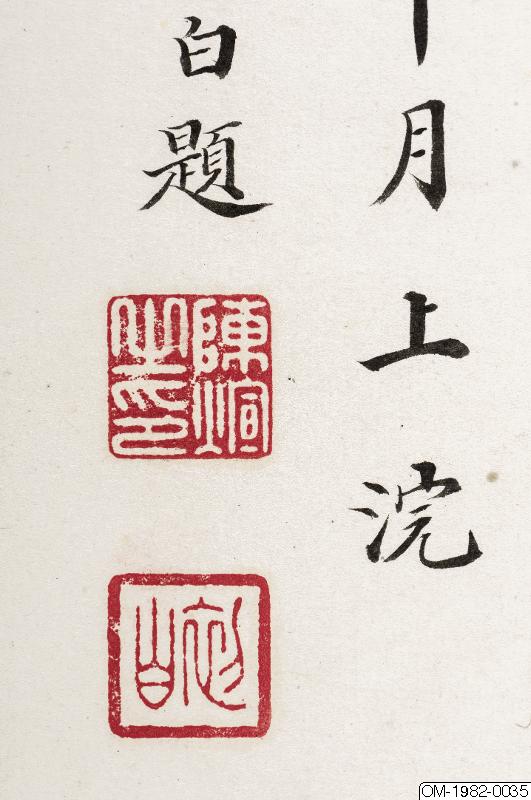 十月上浣
白題
陳烱之印
OM-1982-0035